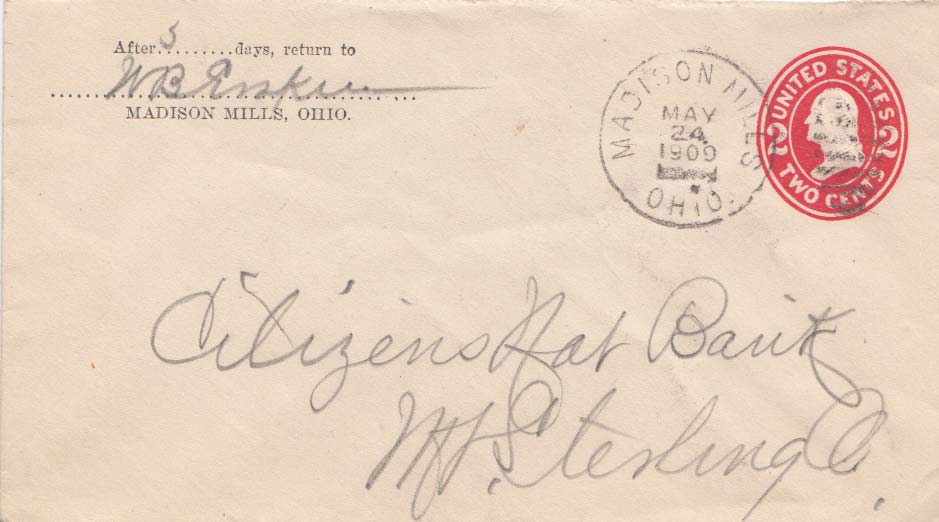 After 5 days, return to
W B Erskine
MADISON MILLS, OHIO.
MADISON MILLS
MAY
24
1909
OHIO.
UNITED STATES
2 2
TWO CENTS
Citizens Nat Bank
Mt. Sterling O.